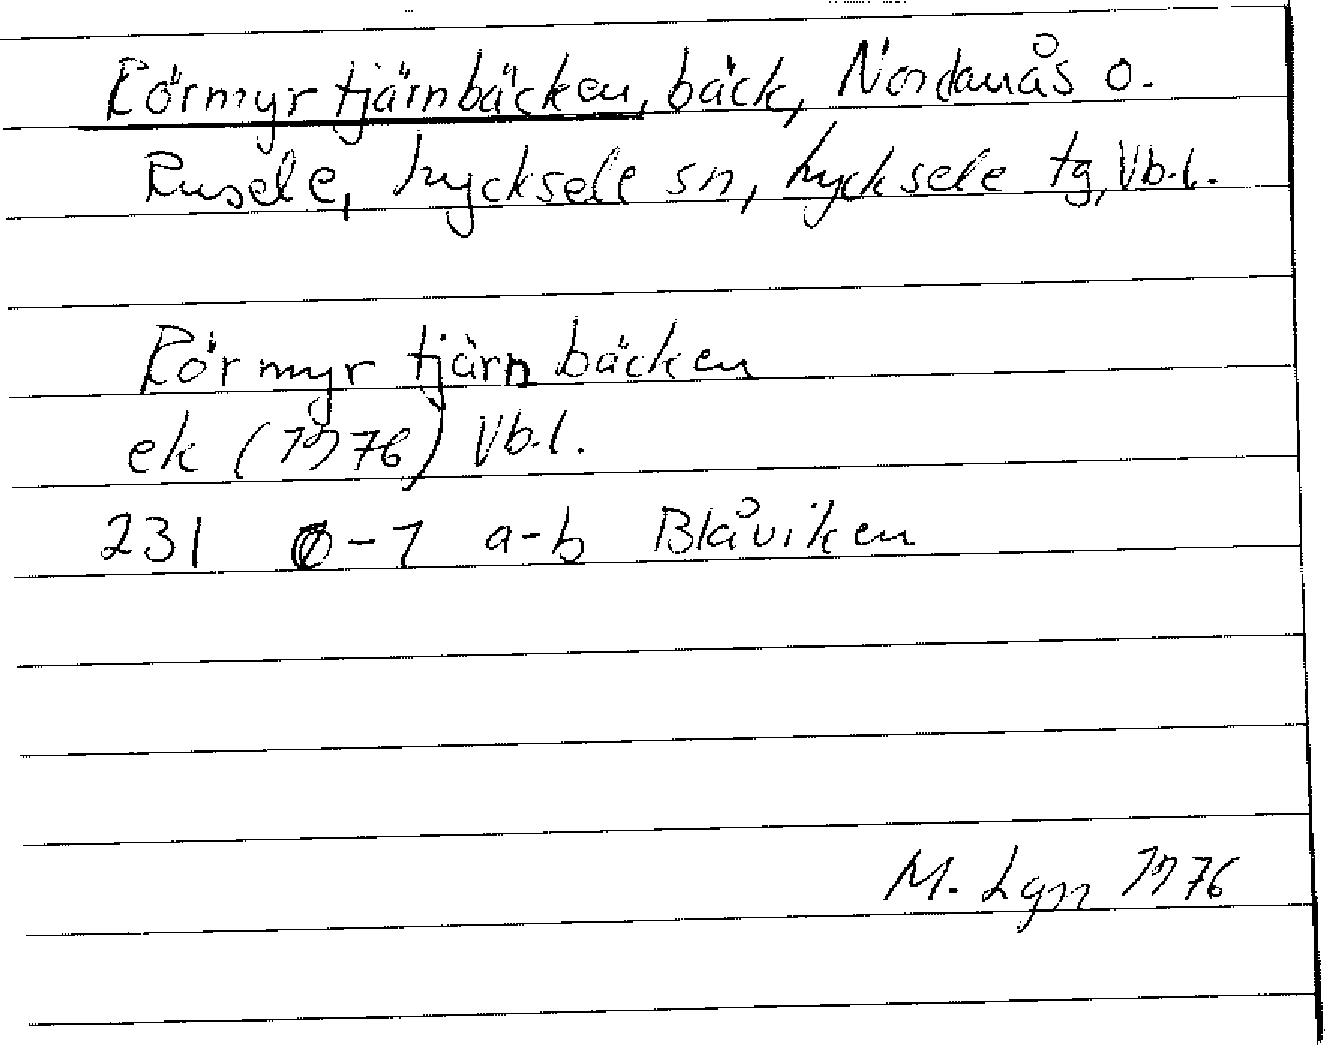 Rörmyrtjärnbäcken, bäck, Nordanås o.
Rusele, Lycksele sn, Lycksele tg, Vb.l.
Rörmyrtjärnbäcken
ek (1976) Vb.l.
231 0-1 a-b Blåviken
M. Lgn 1976